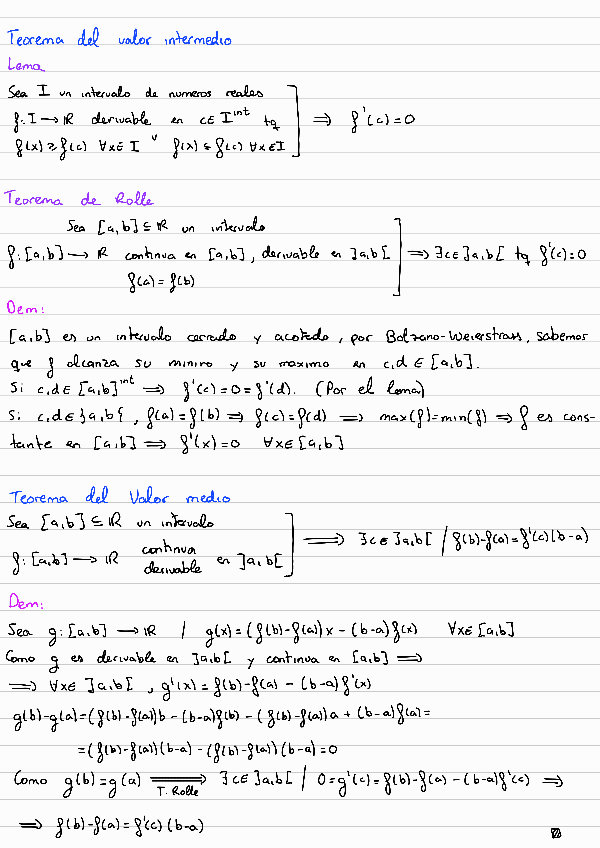 Teorema del valor intermedio
Lema
Sea I un intervalo de numeros reales
f: I → ℝ derivable en c∈I^int tq ⟹ f'(c)=0
f(x) ≥ f(c) ∀x∈I ∨ f(x) ≤ f(c) ∀x∈I
Teorema de Rolle
Sea [a,b] ⊆ ℝ un intervalo
f: [a,b] → ℝ continua en [a,b], derivable en ]a,b[ ⟹ ∃c∈]a,b[ tq f'(c)=0
f(a) = f(b)
Dem:
[a,b] es un intervalo cerrado y acotado, por Bolzano-Weierstrass, sabemos
que f alcanza su minimo y su maximo en c,d ∈ [a,b].
Si c,d ∈ [a,b]^int ⟹ f'(c)=0=f'(d). (Por el lema)
Si c,d∈{a,b}, f(a)=f(b) ⟹ f(c)=f(d) ⟹ max(f)=min(f) ⟹ f es cons-
tante en [a,b] ⟹ f'(x)=0 ∀x∈[a,b]
Teorema del Valor medio
Sea [a,b] ⊆ ℝ un intervalo
f: [a,b] → ℝ continua derivable en ]a,b[ ⟹ ∃c∈]a,b[ / f(b)-f(a)=f'(c)(b-a)
Dem:
Sea g: [a,b] → ℝ / g(x) = (f(b)-f(a))x - (b-a)f(x) ∀x∈[a,b]
Como g es derivable en ]a,b[ y continua en [a,b] ⟹
⟹ ∀x∈]a,b[, g'(x) = f(b)-f(a) - (b-a)f'(x)
g(b)-g(a)=(f(b)-f(a))b - (b-a)f(b) - (f(b)-f(a))a + (b-a)f(a)=
=(f(b)-f(a))(b-a) - (f(b)-f(a))(b-a)=0
Como g(b)=g(a) ⟹ T. Rolle ∃c∈]a,b[ / 0=g'(c)=f(b)-f(a) - (b-a)f'(c) ⟹
⟹ f(b)-f(a)=f'(c)(b-a)